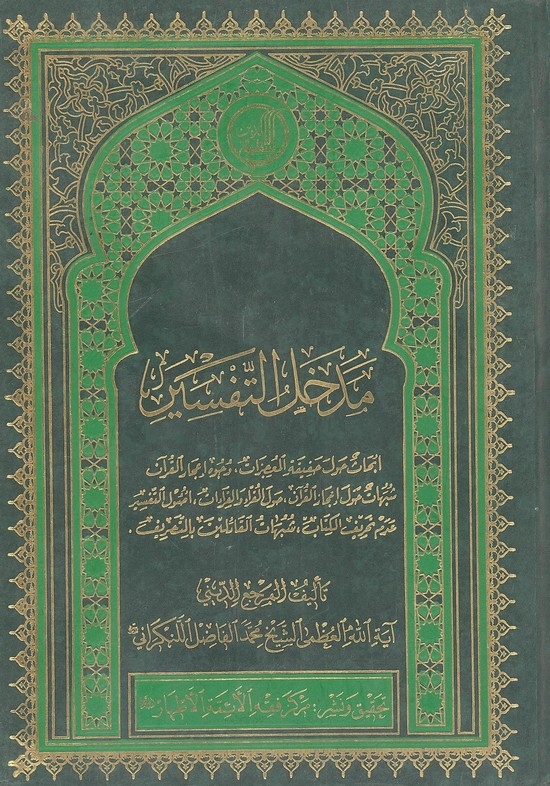 مَدخَلُ التَّفسِير
ابحاثٌ حول حقيقة المعجزات، وجوه اعجاز القرآن
شبهاتٌ حول اعجاز القرآن، حول القراء والقراءات، اصول التفسير
عدم تحريف الكتاب، شبهات القائلين بالتحريف.
تأليف المرجع الديني
آية الله العظمى الشيخ محمد الفاضل اللنكراني
تحقيق ونشر: مركز فقه الأئمة الأطهار